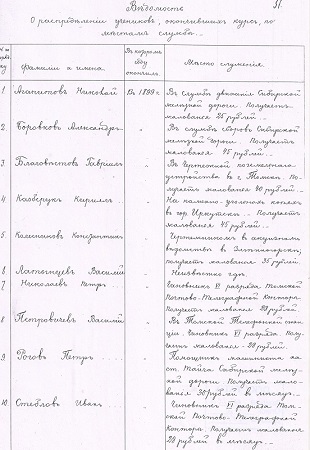 51.
Вѣдомость
О распредѣленіи учениковъ, окончившихъ курсъ, по
мѣстамъ службы.
Фамилія и имена.
Въ которомъ
году
окончилъ.
Мѣсто служенія.
1 Антиповъ Николай Въ 1899 г. Въ службѣ движенія Сибирской
желѣзной дороги. Получаетъ
жалованія 25 рублей.
2. Боровковъ Александръ " Въ службѣ сборовъ Сибирской
желѣзной дороги. Получаетъ
жалованія 45 рублей.
3. Благовѣстовъ Гавріилъ " Въ Чертежной поземельнаго
устройства въ г. Томскѣ. По-
лучаетъ жалованія 40 рублей.
4 " На каменно-угольныхъ копяхъ
въ гор. Иркутскѣ. Получаетъ
жалованія 45 рублей.
5 Калашниковъ Константинъ " Чертежникомъ въ
вѣдомствѣ в
получаетъ жалованія 35 рублей.
6 Василій " Неизвѣстно гдѣ.
7 Николаевъ Петръ " Чиновникъ VI разряда Томской
Почтово-Телеграфной Конторы.
Получаетъ жалованія 28 рублей.
8 Петровичевъ Василій " Въ Томской Телефонной стан-
ціи. Чиновникъ VI разряда. Полу-
чаетъ жалованія 28 рублей.
9 Роговъ Петръ " Помощникъ машиниста на
ст. Тайга Сибирской желѣз-
ной дороги. Получаетъ жало-
ванія 30 рублей въ мѣсяцъ.
10. Стебловъ Иванъ " Чиновникъ VI разряда Том-
ской Почтово-Телеграфной
Конторы. Получаетъ жалованія
28 рублей въ мѣсяцъ.